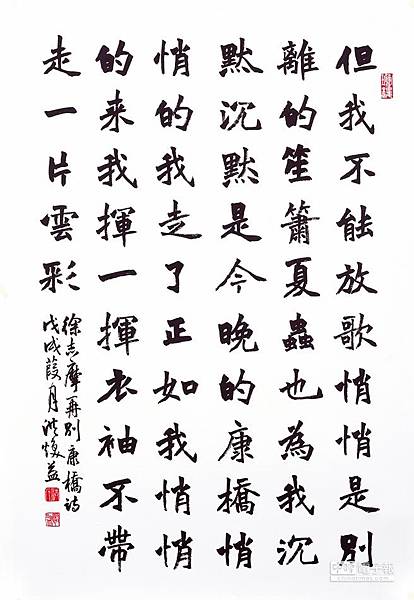 但我不能放歌悄悄是別
離的笙簫夏蟲也為我沉
默沉默是今晚的康橋悄
悄的我走了正如我悄悄
的来我揮一揮衣袖不帶
走一片雲彩
徐志摩再別康橋詩
戊戌葭月洪煥益
中時電子報